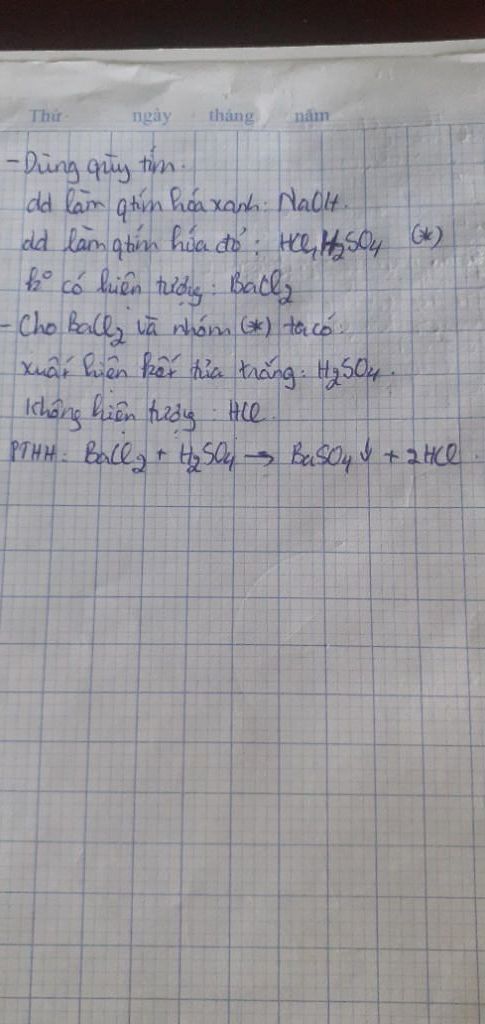 Thứ ngày tháng năm
- Dùng quỳ tím.
dd làm qtím hóa xanh: NaOH.
dd làm qtím hóa đỏ: HCl, H₂SO₄ (*)
k° có hiện tượng: BaCl₂
- Cho BaCl₂ và nhóm (*) ta có:
xuất hiện kết tủa trắng: H₂SO₄.
Không hiện tượng: HCl.
PTHH: BaCl₂ + H₂SO₄ → BaSO₄↓ + 2HCl.